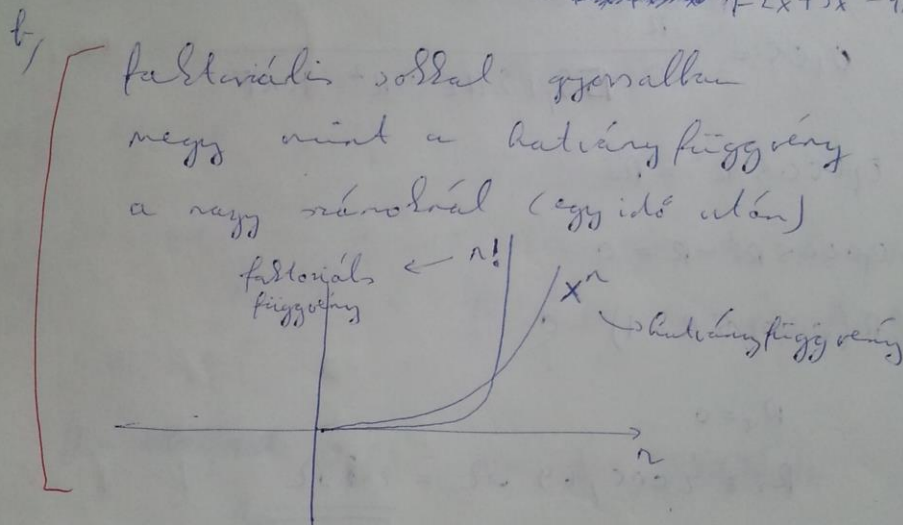 b,
faktoriális sokkal gyorsabban
megy mint a hatványfüggvény
a nagy számoknál (egy idő után)
faktoriális
függvény
n!
xⁿ
hatványfüggvény
n